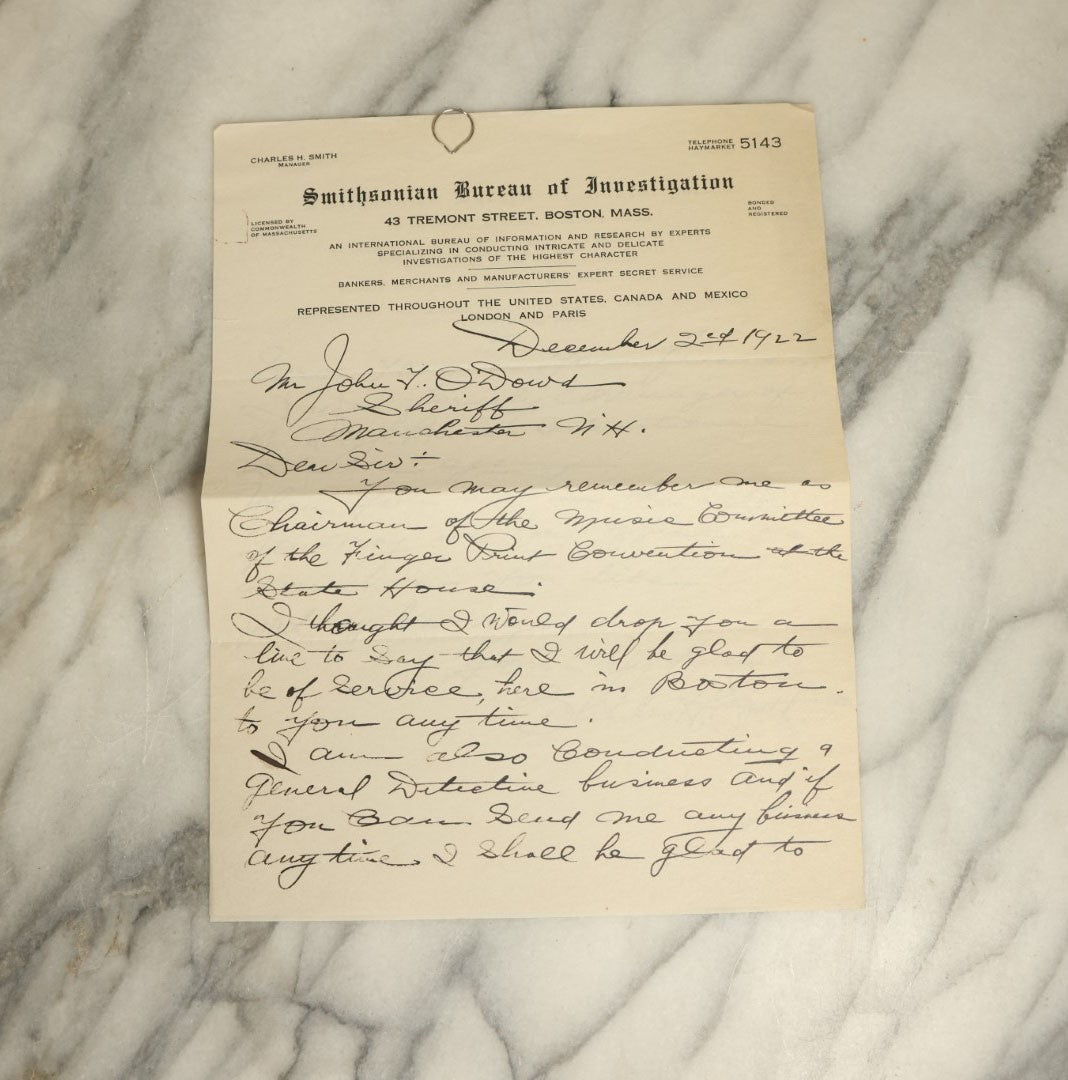 CHARLES H. SMITH
MANAGER
TELEPHONE
HAYMARKET 5143
Smithsonian Bureau of Investigation
43 TREMONT STREET, BOSTON, MASS.
LICENSED BY
COMMONWEALTH
OF MASSACHUSETTS
BONDED
AND
REGISTERED
AN INTERNATIONAL BUREAU OF INFORMATION AND RESEARCH BY EXPERTS
SPECIALIZING IN CONDUCTING INTRICATE AND DELICATE
INVESTIGATIONS OF THE HIGHEST CHARACTER
BANKERS, MERCHANTS AND MANUFACTURERS' EXPERT SECRET SERVICE
REPRESENTED THROUGHOUT THE UNITED STATES, CANADA AND MEXICO
LONDON AND PARIS
December 2nd 1922
Mr John F. O'Dowd
Sheriff
Manchester N.H.
Dear Sir:
You may remember me as
Chairman of the Music Committee
of the Finger Print Convention at the
State House.
I thought I would drop you a
line to Say that I will be glad to
be of Service, here in Boston.
to you any time.
I am also Conducting a
General Detective business and if
you Can Send me any business
anytime, I Shall be glad to